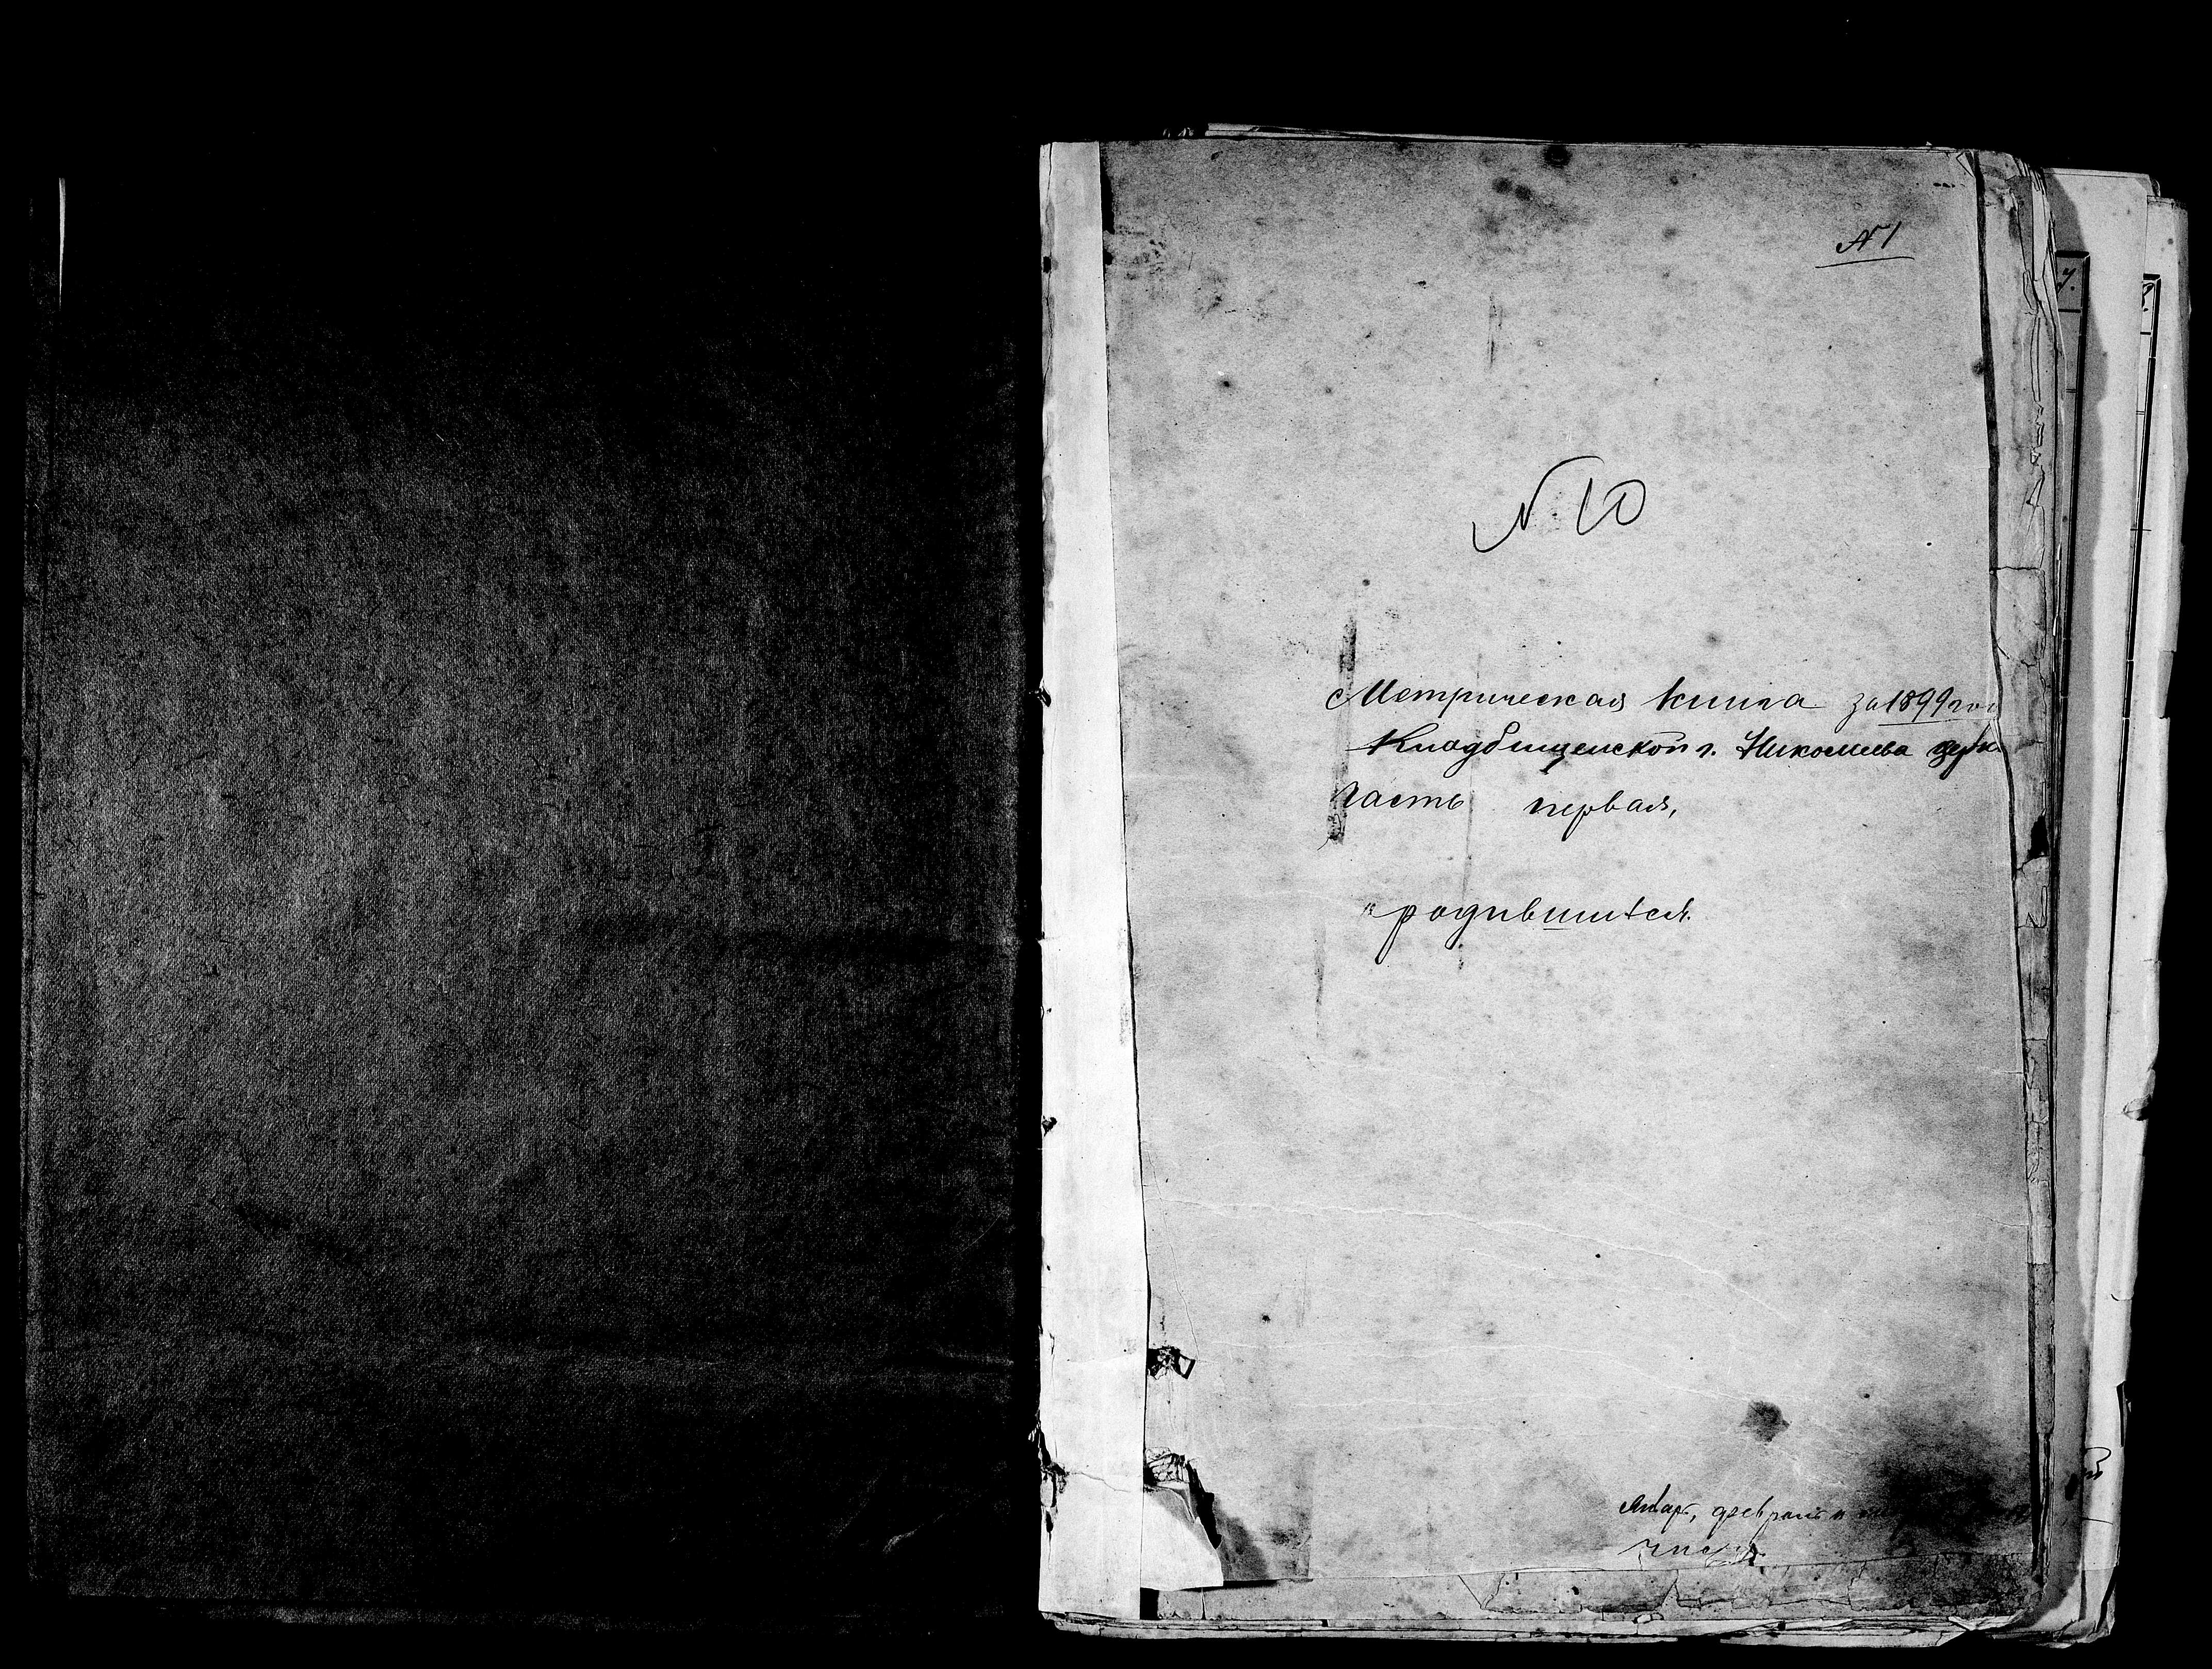 № 1
№ 10
Метрическая книга за 1899 год
Кладбищенской г. Николаева церк
Часть первая,
о родившихся.
Январь, февраль и
числа